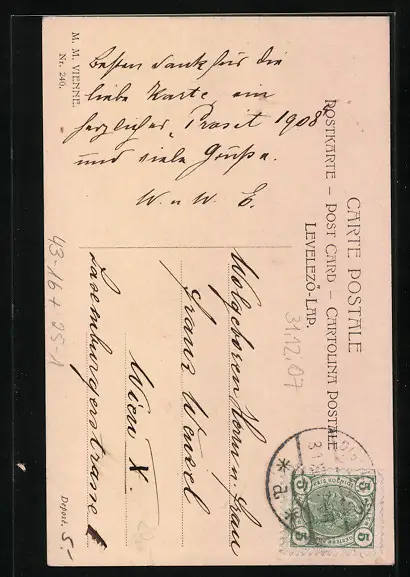 CARTE POSTALE
POSTKARTE – POST CARD – CARTOLINA POSTALE
LEVELEZŐ-LAP.
M. M. VIENNE.
Nr. 240.
Besten Dank für die
liebe Karte, ein
herzliches „Prosit 1908“
und viele Grüße.
W. u W. E.
Wolgeboren Herrn u. Frau
Franz Wenzel
Wien X.
Laxemburgerstrasse
31.12.07
43-16+ 25-1
Depost. 5.-
5 5
5 5